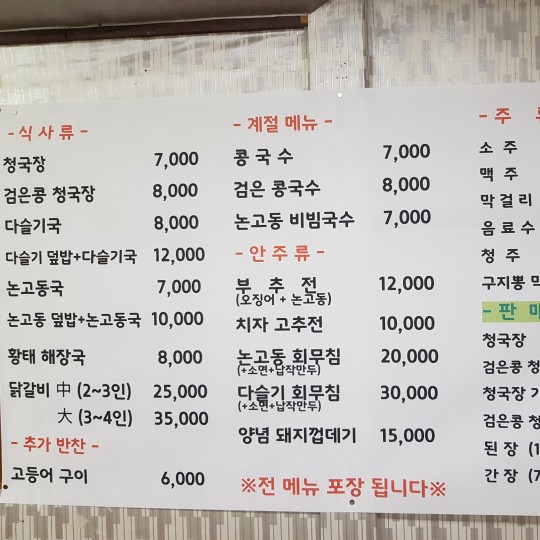 - 식 사 류 -
청국장 7,000
검은콩 청국장 8,000
다슬기국 8,000
다슬기 덮밥+다슬기국 12,000
논고동국 7,000
논고동 덮밥+논고동국 10,000
황태 해장국 8,000
닭갈비 中 (2~3인) 25,000
大 (3~4인) 35,000
- 추가 반찬 -
고등어 구이 6,000
- 계절 메뉴 -
콩 국 수 7,000
검은 콩국수 8,000
논고동 비빔국수 7,000
- 안 주 류 -
부 추 전 12,000
(오징어 + 논고동)
치자 고추전 10,000
논고동 회무침 20,000
(+소면+납작만두)
다슬기 회무침 30,000
(+소면+납작만두)
양념 돼지껍데기 15,000
※전 메뉴 포장 됩니다※
- 주
소 주
맥 주
막걸리
음료수
청 주
구지뽕
- 판
청국장
검은콩 청
청국장
검은콩 청
된 장
간 장